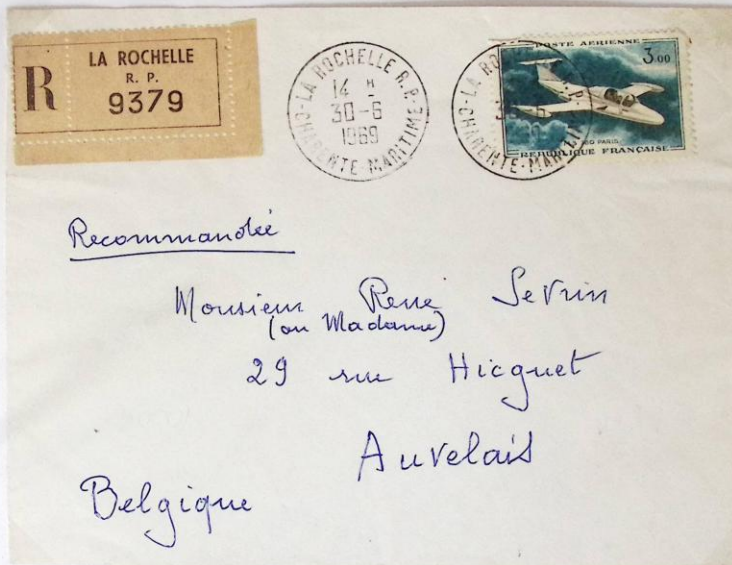 R
LA ROCHELLE
R. P.
9379
LA ROCHELLE R.P.
14 H
30-6
1969
CHARENTE-MARITIME
POSTE AERIENNE
3,00
REPUBLIQUE FRANÇAISE
Recommandée
Monsieur René Sevrin
(ou Madame)
29 rue Hicguet
Auvelais
Belgique